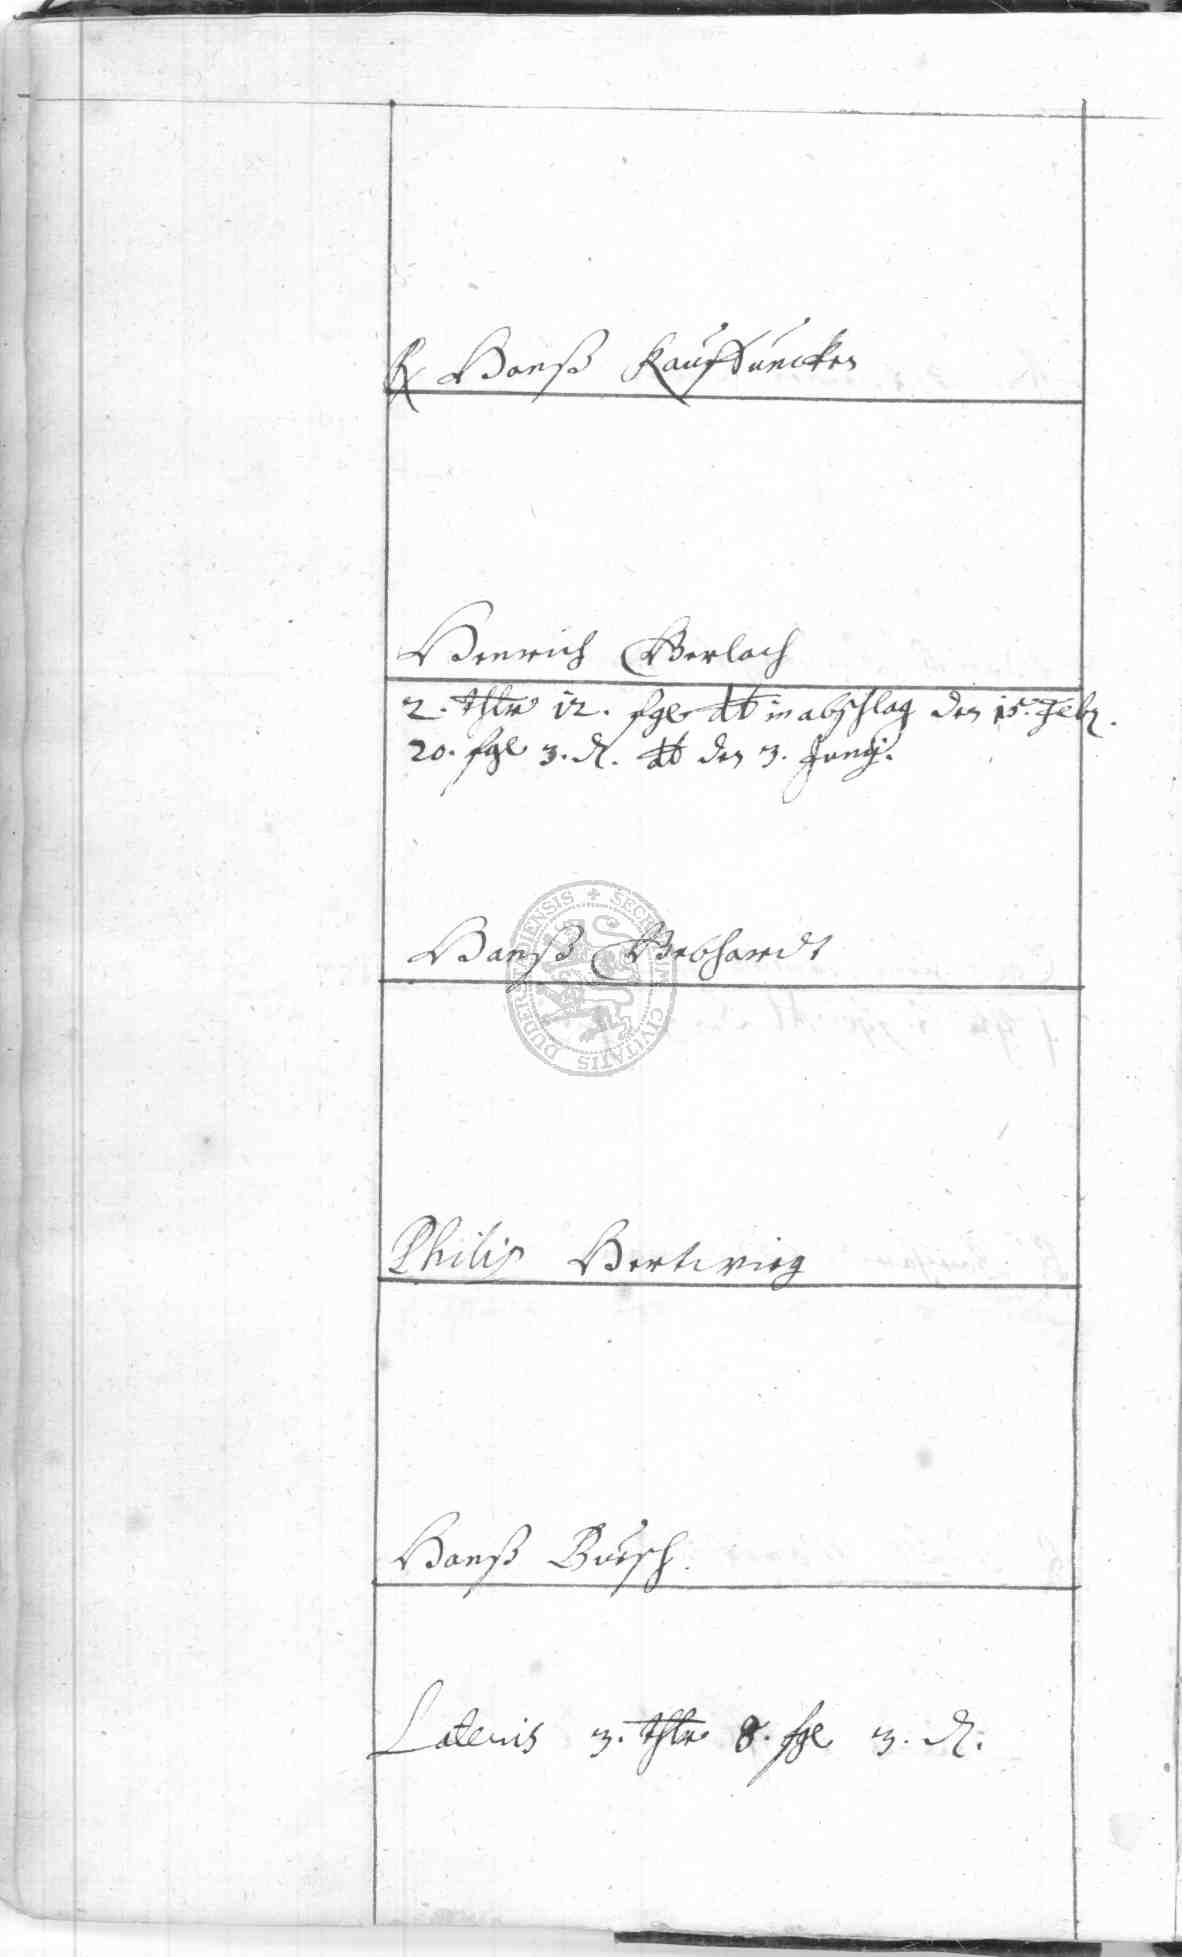 Hanß Kauffuncken
Henrich Gerlach
2. thlr 12. sgl dt in abschlag den 15. Feb.
20. sgl 3. d. dt den 3. Junij.
Hanß Gebhardt
Philip Hertwieg
Hanß Busch.
Lateris 3. thlr 8. sgl 3. d.
SECRETUM CIVITATIS DUDERSTADIENSIS